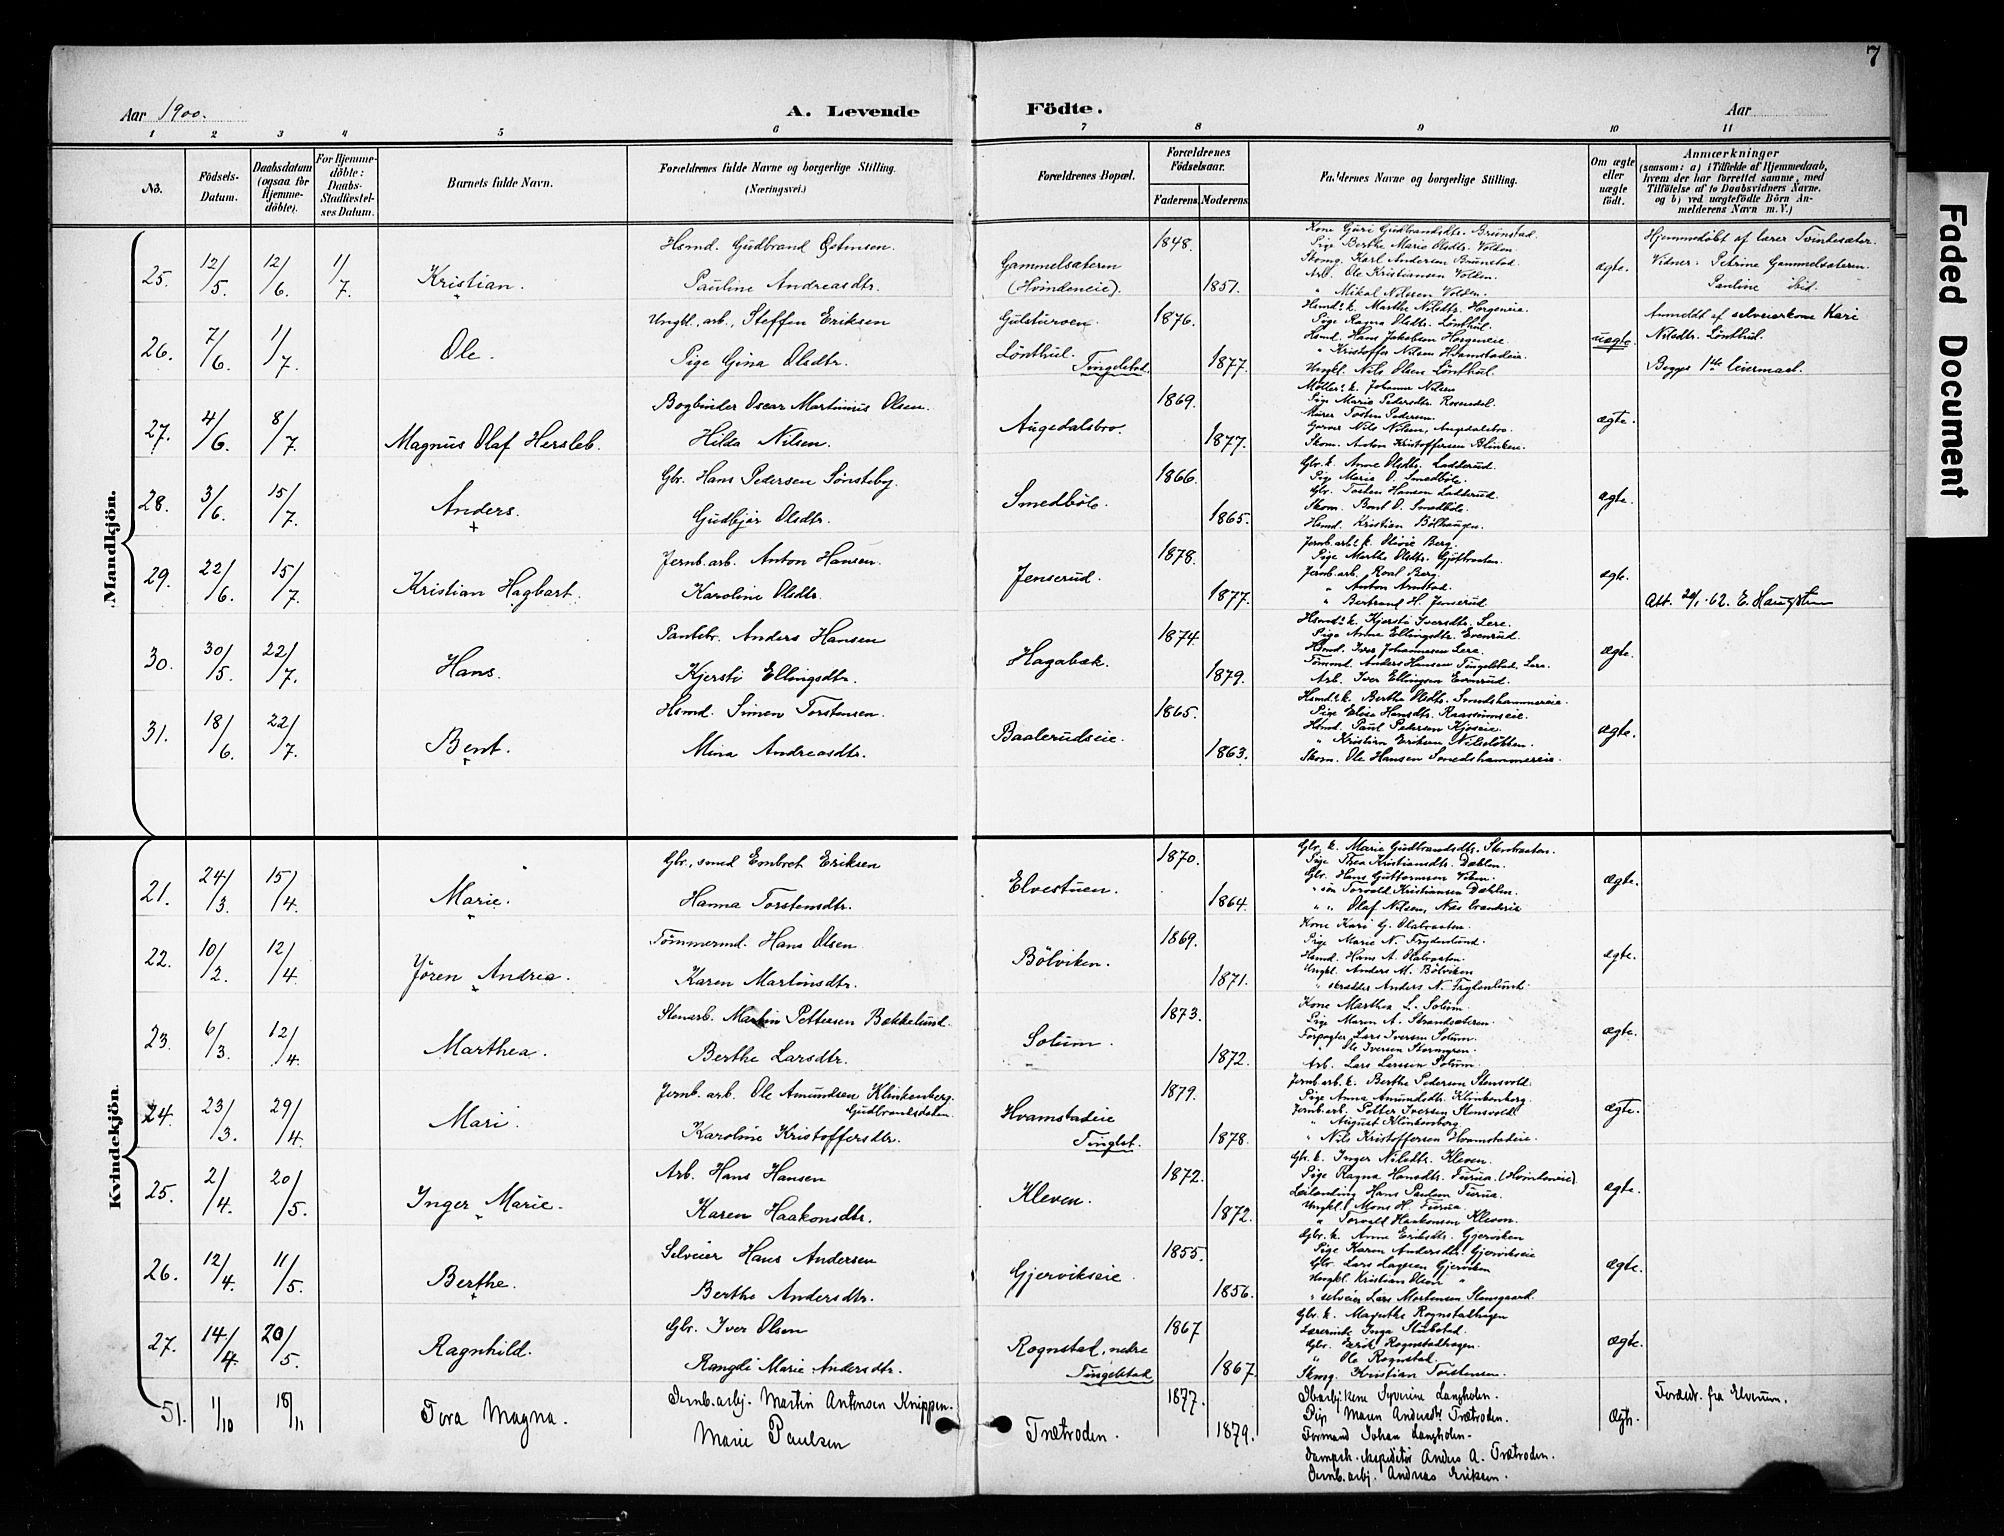 7
Aar 1900.
A. Levende Födte.
Aar
1 2 3 4 5 6 7 8 9 10 11
No.
Födsels-Datum.
Daabsdatum (ogsaa for Hjemme-döbte).
For Hjemme-döbte: Daabs-Stadfæstel-ses Datum.
Barnets fulde Navn.
Forældrenes fulde Navne og borgerlige Stilling. (Næringsvei.)
Forældrenes Bopæl.
Forældrenes Födselsaar.
Faderens. Moderens.
Faddernes Navne og borgerlige Stilling.
Om ægte eller uægte födt.
Anmærkninger
(saasom: a) i Tilfælde af Hjemmedaab, hvem der har forrettet samme, med Tilföielse af to Daabsvidners Navne, og b) ved uægtefödte Börn An-melderens Navn m. V.)
Mandkjön.
25. 12/5 12/6 1/7 Kristian.
Hsmd. Gudbrand Østensen
Pauline Andreasdtr.
Gammelsæteren (Hvindeneie).
1848. 1851.
Kone Guri Gudbrandsdtr. Brunstad.
Pige Berthe Marie Olsdtr. Volden.
Skomg. Karl Andersen Brunstad.
Arb. Ole Kristiansen Volden.
" Mikal Nilsen Volden.
ægte.
Hjemmedøbt af lærer Tvindesæter.
Vidner: Petrine Gammelsæteren.
Pauline ibid.
26. 7/6 1/7 Ole.
Ungkl., arb., Steffen Eriksen
Pige Gina Olsdtr.
Gulsturoen.
Lønthul. Tingelstad.
1876. 1877.
Hsmd's k. Marthe Nilsdtr. Horgeneie.
Pige Ragna Olsdtr. Lønthul.
Hsmd. Hans Jakobsen Horgeneie.
" Kristoffer Nilsen Hvamstadeie.
Ungkl. Nils Olsen Lønthul.
uægte.
Anmeldt af selveierkone Kari
Nilsdtr. Lønthul.
Begges 1ste leiermaal.
27. 4/6 8/7 Magnus Olaf Hersleb.
Bogbinder Oscar Martinius Olsen.
Hilda Nilsen.
Augedalsbro.
1869. 1877.
Møller's k. Johanne Nilsen
Pige Marie Pedersdtr. Rosendal.
Murer Torsten Pedersen.
Garver Nils Nilsen, Augedalsbro.
Skom. Anton Kristoffersen Blinken.
ægte.
28. 3/6 15/7 Anders.
Gbr. Hans Pedersen Sønsteby.
Gudbjør Olsdtr.
Smedbøle.
1866. 1865.
Gbr. k. Anne Olsdtr. Ladderud.
Pige Marie O. Smedbøle.
Gbr. Torsten Hansen Ladderud.
Skom. Bent O. Smedbøle.
Hsmd. Kristian Bølhaugen.
ægte.
29. 22/6 15/7 Kristian Hagbart.
Jernb. arb. Anton Hansen.
Karoline Olsdtr.
Jenserud.
1878. 1877.
Jernb. arb's k. Olivie Berg.
Pige Marthe Olsdtr. Gjøtbraaten.
Jernb. arb. Roal Berg.
" Anton Arnstad.
" Bertrand H. Jenserud.
ægte.
Att. 20/1-62. E. Haugstun
30. 30/5 22/7 Hans.
Pantebr. Anders Hansen
Kjersti Ellingsdtr.
Hagabæk.
1874. 1879.
Hsmd's k. Kjersti Iversdtr. Lere.
Pige Anne Ellingsdtr. Evenrud.
Hsmd. Iver Johannesen Lere.
Tømmd. Anders Hansen Tingelstad. Lere.
Arb. Iver Ellingsen Evenrud.
ægte.
31. 18/6 22/7 Bent.
Hsmd. Simen Torstensen.
Mina Andreasdtr.
Baalerudseie.
1865. 1863.
Hsmd's k. Berthe Olsdtr. Smedshammereie.
Pige Elise Hansdtr. Raassumseie.
Hsmd. Paul Pedersen Kjoseie.
" Kristian Eriksen Nilsløkken.
Skom. Ole Hansen Smedshammereie.
ægte.
Kvindekjön.
21. 24/3 15/4 Marie.
Gbr., smed Embret Eriksen
Hanna Torstensdtr.
Elvestuen.
1870. 1864.
Gbr. k. Marie Gudbrandsdtr. Stenbraaten.
Pige Thea Kristiansdtr. Dæhlen.
Gbr. Hans Guttormsen Volen.
" søn Torvald Kristiansen Dæhlen.
" " Olaf Nilsen, Næs
ægte.
22. 10/2 12/4 Jören Andrea.
Tømmermd. Hans Olsen.
Karen Martinsdtr.
Bölviken.
1869. 1871.
Kone Kari G. Olabraaten.
Pige Marie N. Frydenlund.
Hsmd. Hans A. Olabraaten.
Ungkl. Anders M. Bölviken
" skrædder Anders N. Frydenlund.
ægte.
23. 6/3 12/4 Marthea.
Stenarb. Martin Pettersen Bækkelund.
Berthe Larsdtr.
Solum.
1873. 1872.
Kone Marthea L. Solum.
Pige Maren A. Strandsæteren.
Forpagter Lars Iversen Solum.
" Ole Iversen Stormyren.
Arb. Lars Larssen Solum.
ægte.
24. 23/3 29/4 Mari.
Jernb. arb. Ole Amundsen Klinkenberg.
Gudbrandsdalen.
Karoline Kristoffersdtr.
Hvamstadeie
Tinglst.
1879. 1878.
Jernb. arb. k. Berthe Pedersen Stensvold.
Pige Anna Amundsdtr. Klinkenberg.
Jernb. arb. Petter Iversen Stensvold.
" August Klinkenberg.
" Nils Kristoffersen Hvamstadeie.
ægte.
25. 2/4 20/5 Inger Marie.
Arb. Hans Hansen
Karen Haakonsdtr.
Kleven.
1872. 1872.
Gbr. k. Inger Nilsdtr. Kleven.
Pige Ragna Hansdtr. Furua. (Hvindeneie).
Leilending Hans Paulsen Furua.
Ungkl. Mons H. Furua.
" Torvald Haakonsen Kleven.
ægte.
26. 12/4 11/5 Berthe.
Selveier Hans Andersen
Berthe Andersdtr.
Gjervikseie.
1855. 1856.
Gbr. k. Anne Eriksdtr. Gjerviken
Pige Karen Andersdtr. Gjervikseie
Gbr. Lars Larsen Gjerviken
Ungkl. Kristian Olsen "
" selveier Lars Mortensen Stensgaard.
ægte.
27. 14/4 20/5 Ragnhild.
Gbr. Iver Olsen
Rangdi Marie Andersdtr.
Rognstad, nedre
Tingelstad
1867 1867.
Gbr. k. Magnhe Rognstadhagen
Lærerinde Inga Stubstad.
Gbr. Erik Rognstadhagen.
" Ole Rognstad.
Skmg. Kristian Torstensen.
ægte.
51. 1/10 18/11 Tora Magna.
Jernb.arbj. Martin Antonsen Knippen.
Marie Paulsen
Trætroden.
1877. 1879.
Jbarbj. kone Syverine Langholen.
Pige Maren Andersdtr Trætroden.
Formand Johan Langholen.
Dampsk. ekspeditør Andres A. Trætroden.
Jernb.arbj. Andreas Eriksen.
Ægte.
Forældr. fra Elverum.
Faded Document